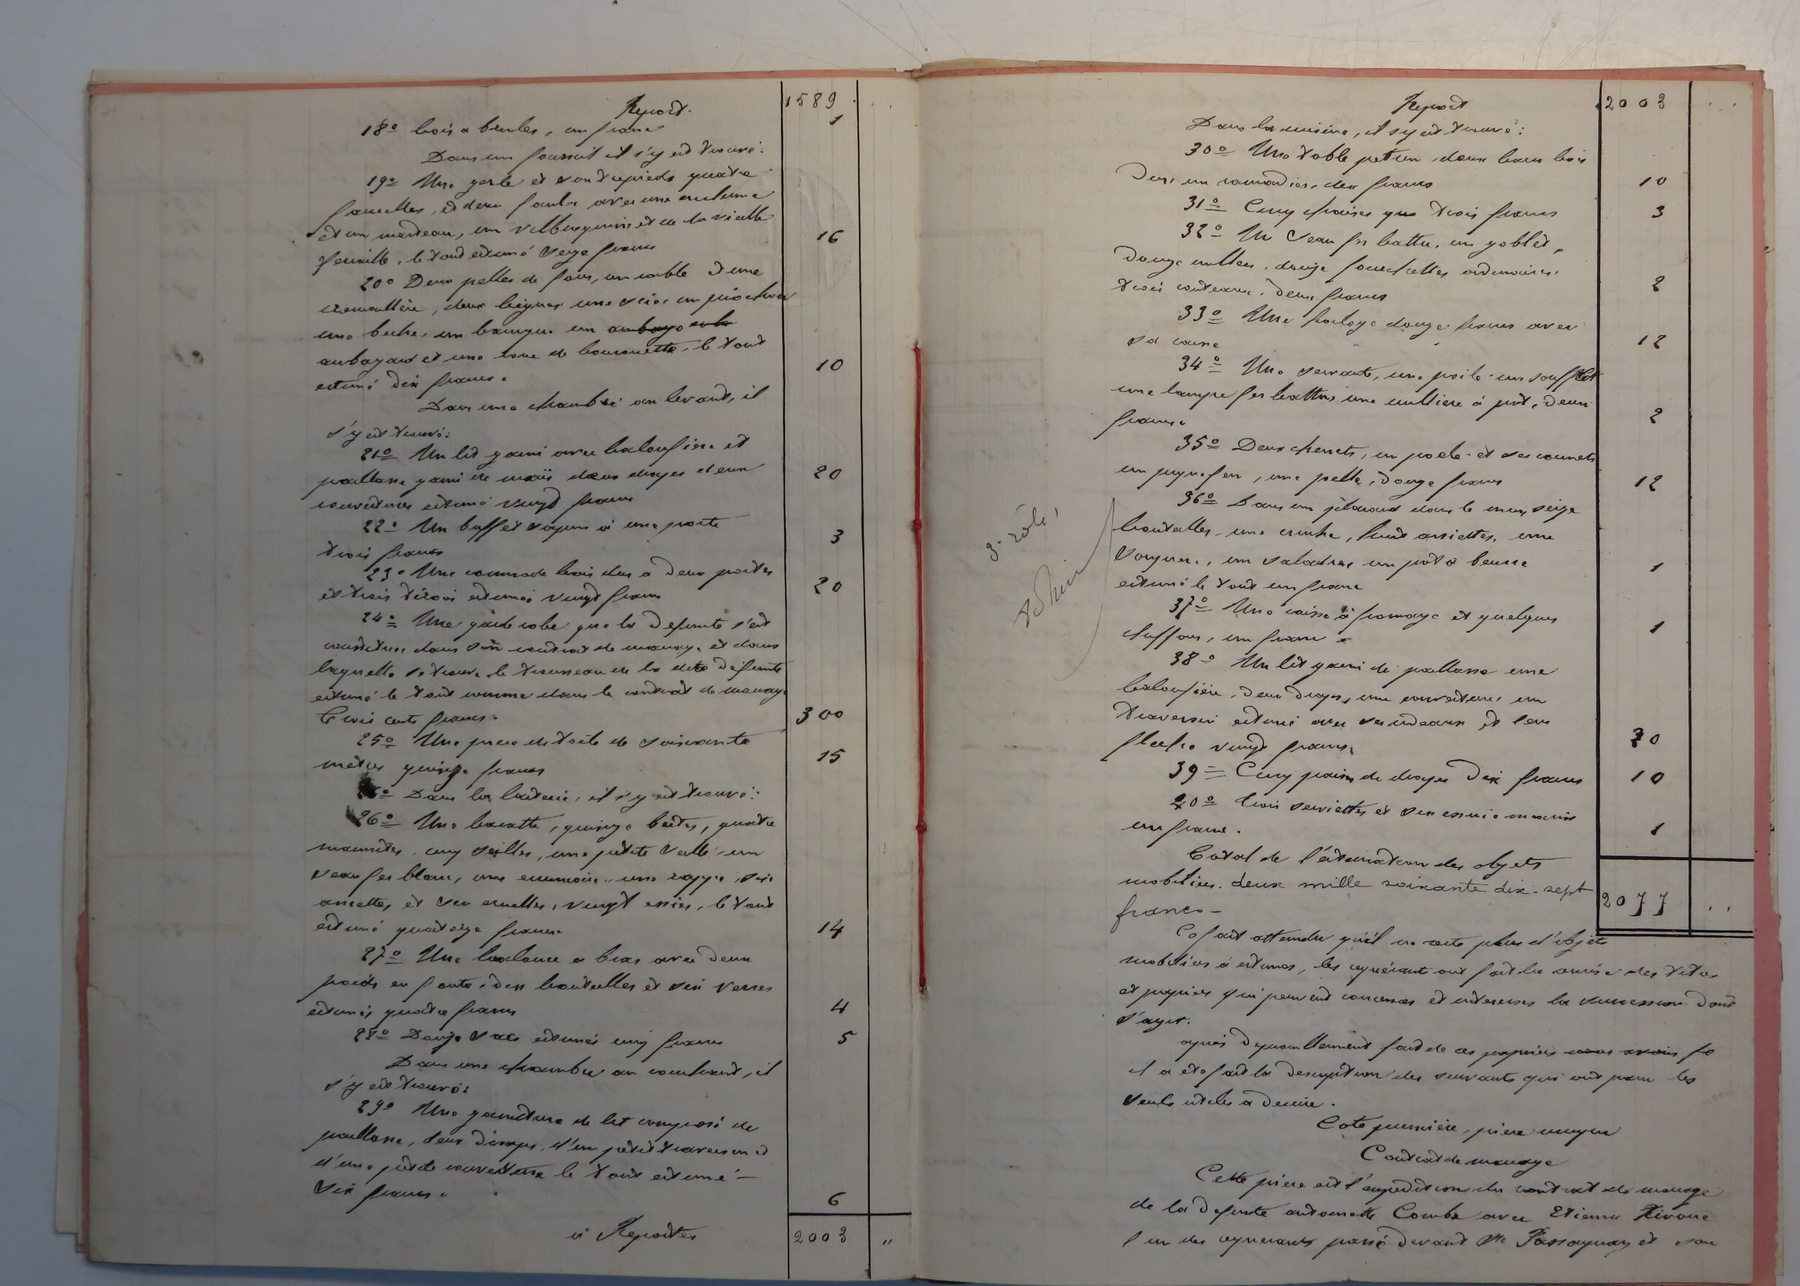 Report. 1589
18° bois a bruler, un franc 1
Dans un fournil il s'y est trouvé:
19° Une gerle et son trepieds quatre
faucilles, et deux faulx avec une enclume
et un marteau, un vilbrequin et de la vieille
feraille, le tout estimé seize francs 16
20° Deux pelles de four, un cable et une
cremaillère, deux bignes une scie un piochon
une beche, un un
et une roue de brouette, le tout
estimé dix francs. 10
Dans une chambre au levant, il
s'y est trouvé:
21° Un lit garni avec baloufière et
paillasse garni de maïs deux draps et une
couverture estimé vingt francs 20
22° Un buffet sapin à une porte
trois francs 3
23° Une commode bois dur a deux portes
et trois tiroirs estimés vingt francs 20
24° Une garde robe que la defunte s'est
constituée dans son contrat de mariage et dans
laquelle se trouve le trousseau de la dite defunte
estimé le tout comme dans le contrat de mariage
trois cents francs. 300
25° Une pièce de toile de soixante
mètres quinze francs 15
Dans la laiterie, il s'y est trouvé:
26° Une baratte, quinze bertes, quatre
marmites, cinq seilles, une petite seille, un
seau fer blanc, une ecumoire, une rappe, six
assiettes et six ecuelles, vingt, le tout
estimé quatorze francs 14
27° Une balance a bras avec deux
poids en fonte, dix bouteilles et six verres
estimés quatre francs 4
28° Douze sacs estimés cinq francs 5
Dans une chambre au couchant, il
s'y est trouvé:
29° Une garniture de lit composé de
paillasse, deux draps, d'un petit traversin et
d'une petite couverture le tout estimé
six francs. 6
à Reporter 2003 "
Report 2003
Dans la cuisine, il s'y est trouvé:
30° Une table petrin deux bancs bois
dur, un, dix francs 10
31° Cinq chaises trois francs 3
32° Un seau fer battu, un goblet,
douze cuillers, douze fourchettes ordinaires,
trois couteaux, deux francs 2
33° Une horloge douze francs avec
sa caisse 12
34° Une servante, une poile un soufflet
une lampe fer battu une cuillière à pot, deux
francs. 2
35° Deux chenets, un poele et ses cornets
un, une pelle, douze francs 12
36° Dans un placard dans le mur, seize
bouteilles, une cruche, huit assiettes, une
soupière, un saladier un pot à beurre
estimé le tout un franc 1
37° Une caisse à fromage et quelques
chiffons, un franc 1
38° Un lit garni de paillasse une
baloufière, deux draps, une couverture, un
traversin estimé avec ses rideaux et leur
flèche vingt francs. 20
39° Cinq paires de draps dix francs 10
40° Trois serviettes et six essuie-mains
un franc. 1
Total de l'estimation des objets
mobiliers. deux mille soixante dix-sept
francs - 2077
Ce fait attendu qu'il ne reste plus d'objets
mobiliers à estimer, les requérants ont fait la remise des titres
et papiers qui peuvent concerner et interesser la succession dont
s'agit.
après depouillement fait de ces papiers
il a été fait la description des suivants qui ont paru les
seuls utiles a decrire.
Cote première, pièce unique
Contrat de mariage
Cette pièce est l'expédition du contrat de mariage
de la defunte antoinette Combe avec Etienne
l'un des requerants passé devant Me et son
3e rôle,